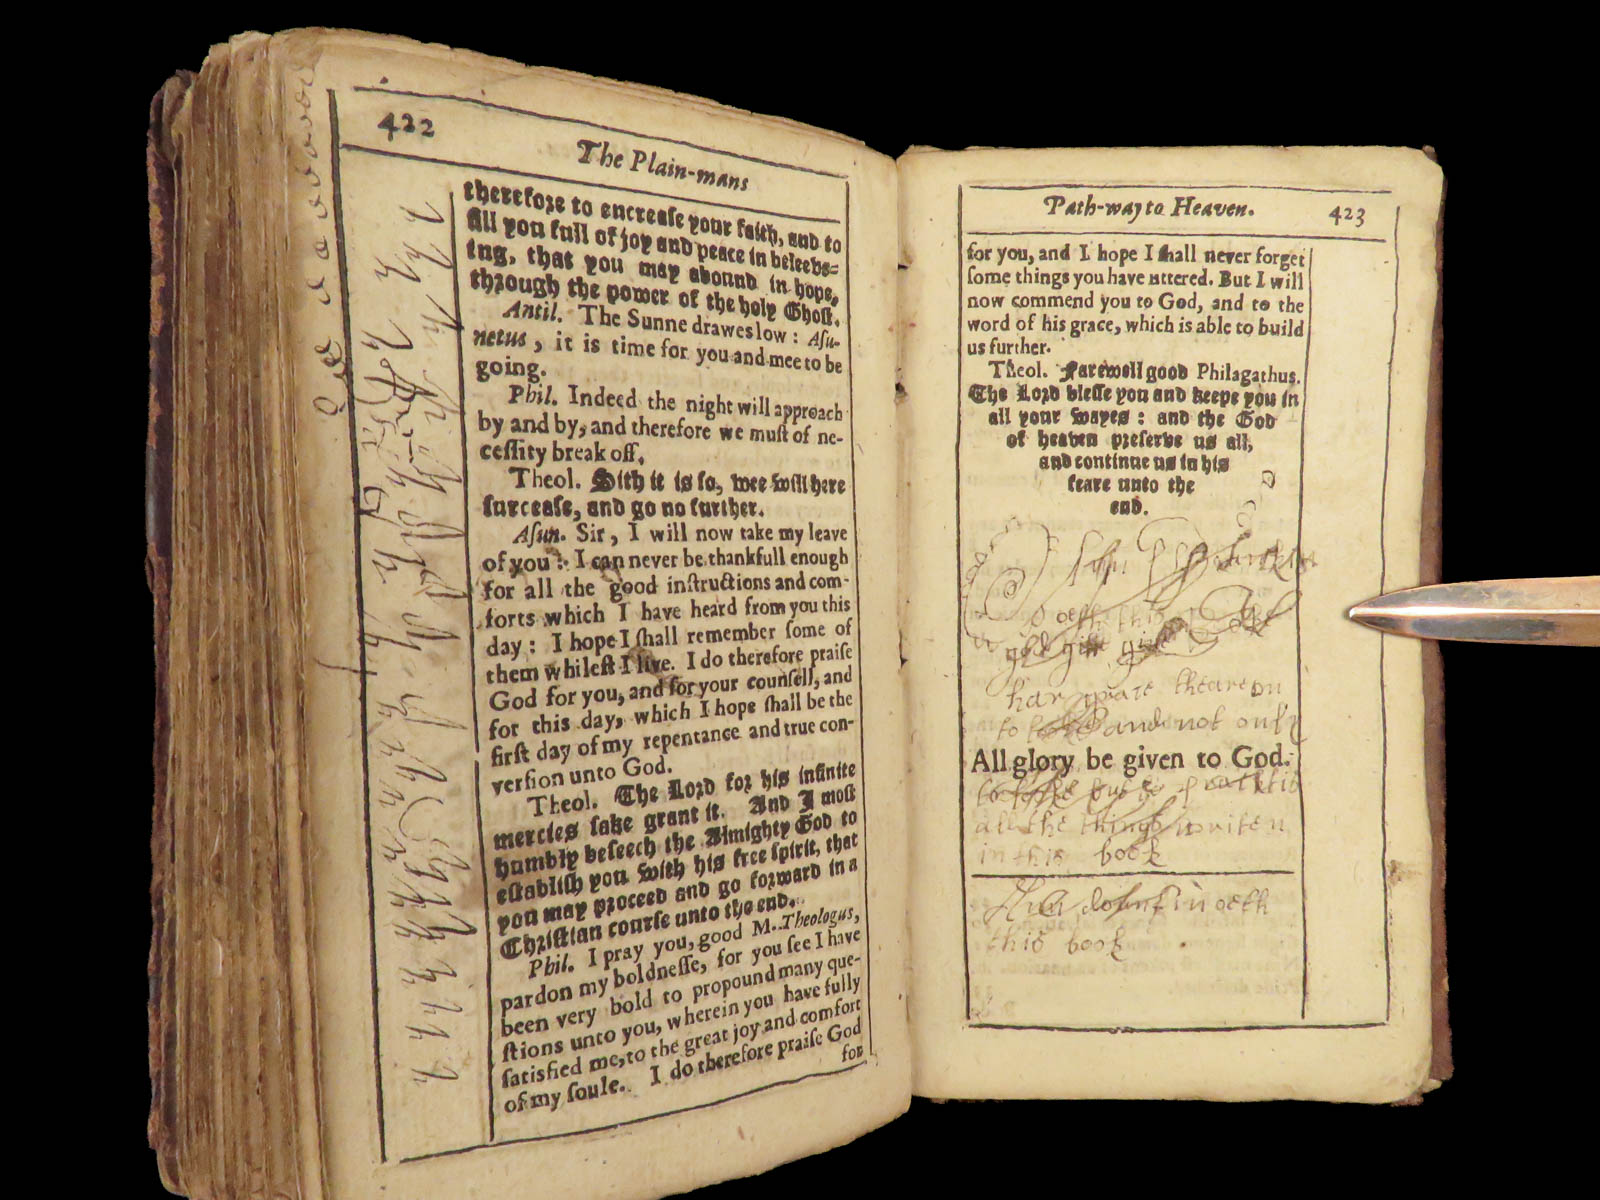 422
The Plain-mans
therefore to encrease your faith, and to
fill you full of joy and peace in beleev-
ing, that you may abound in hope,
through the power of the holy Ghost.
Antil. The Sunne drawes low : Asu-
netus, it is time for you and mee to be
going.
Phil. Indeed the night will approach
by and by, and therefore we must of ne-
cessity break off.
Theol. Sith it is so, wee will here
surcease, and go no further.
Asun. Sir, I will now take my leave
of you : I can never be thankfull enough
for all the good instructions and com-
forts which I have heard from you this
day : I hope I shall remember some of
them whilest I live. I do therefore praise
God for you, and for your counsell, and
for this day, which I hope shall be the
first day of my repentance and true con-
version unto God.
Theol. The Lord for his infinite
mercies sake grant it. And I most
humbly beseech the Almighty God to
establish you with his free spirit, that
you may proceed and go forward in a
Christian course unto the end.
Phil. I pray you, good M. Theologus,
pardon my boldnesse, for you see I have
been very bold to propound many que-
stions unto you, wherein you have fully
satisfied me, to the great joy and comfort
of my soule. I do therefore praise God
for
Path-way to Heaven. 423
for you, and I hope I shall never forget
some things you have uttered. But I will
now commend you to God, and to the
word of his grace, which is able to build
us further.
Theol. Farewell good Philagathus.
The Lord blesse you and keepe you in
all your wayes : and the God
of heaven preserve us all,
and continue us in his
feare unto the
end.
oeth this
god give
theareon
to and not only
All glory be given to God.
all the things writen
in this book
oeth
this book